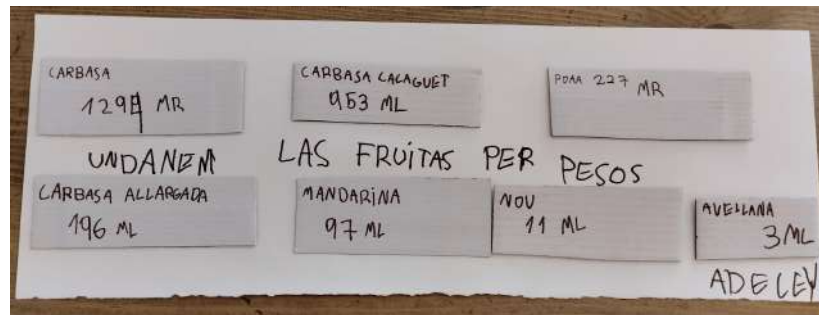 CARBASA
1294 MR
CARBASA CACAGUET
953 ML
POMA 227 MR
UNDANEM LAS FRUITAS PER PESOS
CARBASA ALLARGADA
196 ML
MANDARINA
97 ML
NOU
11 ML
AVELLANA
3 ML
ADELEY